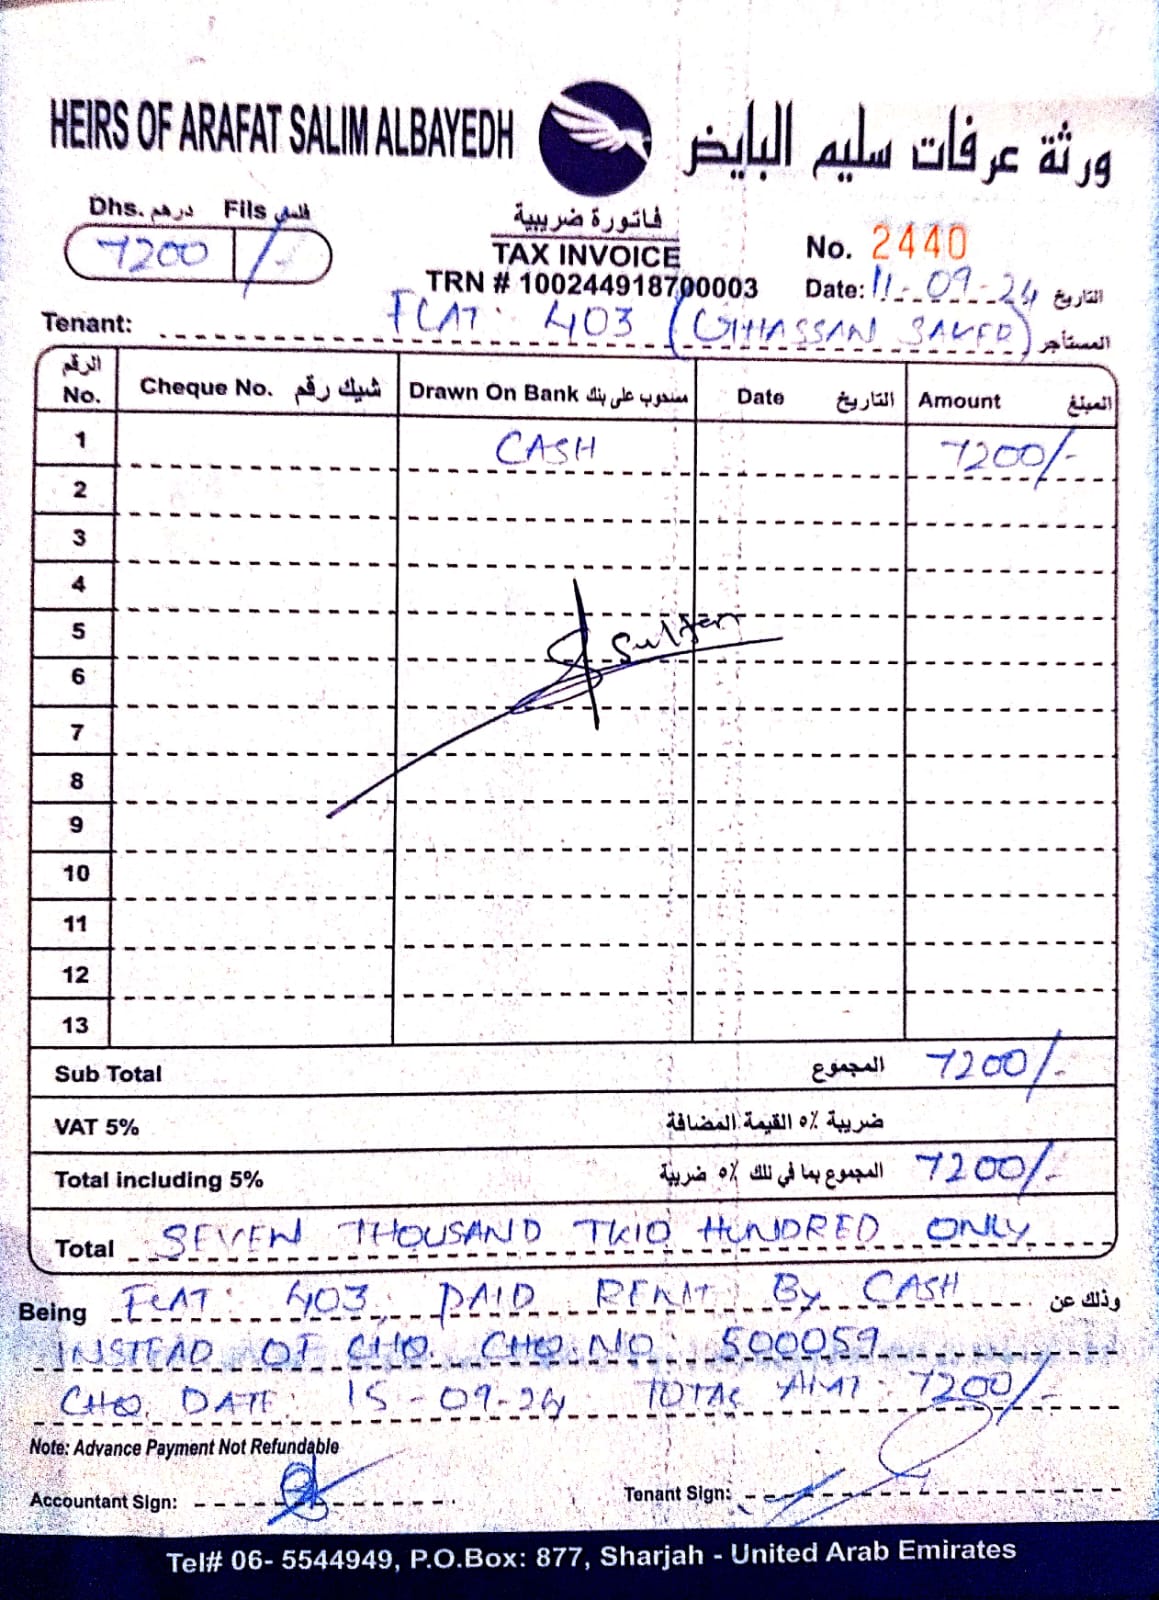 HEIRS OF ARAFAT SALIM ALBAYEDH
ورثة عرفات سليم البايض
Dhs. درهم Fils فلس
7200 /-
فاتورة ضريبية
TAX INVOICE
TRN # 100244918700003
No. 2440
Date: 11-09-24 التاريخ
Tenant: FLAT: 403 (GHASSAN SAKER) المستأجر
الرقم No. Cheque No. شيك رقم Drawn On Bank مسحوب على بنك Date التاريخ Amount المبلغ
1 CASH 7200/-
2
3
4
5
Sultan
6
7
8
9
10
11
12
13
Sub Total المجموع 7200/-
VAT 5% ضريبة ٥٪ القيمة المضافة
Total including 5% المجموع بما في ذلك ٥٪ ضريبة 7200/-
Total SEVEN THOUSAND TWO HUNDRED ONLY
Being FLAT: 403 PAID RENT By CASH وذلك عن
INSTEAD OF CHQ. CHQ.NO: 500059
CHQ. DATE: 15-09-24 TOTAL AMT: 7200/-
Note: Advance Payment Not Refundable
Accountant Sign:
Tenant Sign:
Tel# 06- 5544949, P.O.Box: 877, Sharjah - United Arab Emirates